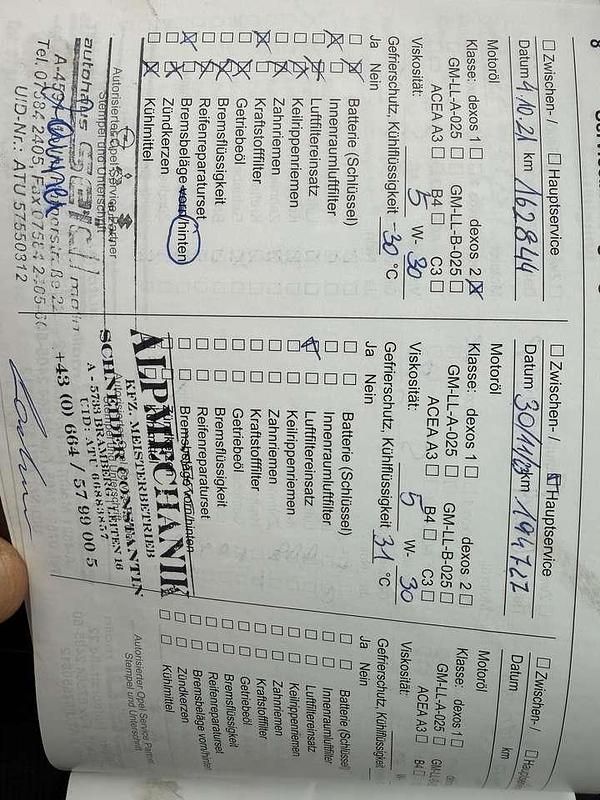 8
Zwischen- / Hauptservice
Datum 4.10.21 km 162844
Motoröl
Klasse: dexos 1 dexos 2 X
GM-LL-A-025 GM-LL-B-025
ACEA A3 B4 C3
Viskosität: 5 W- 30
Gefrierschutz, Kühlflüssigkeit -30 °C
Ja Nein
Batterie (Schlüssel)
Innenraumluftfilter
Luftfiltereinsatz
Keilrippenriemen
Zahnriemen
Kraftstofffilter
Getriebeöl
Bremsflüssigkeit
Reifenreparaturset
Bremsbeläge vorn/hinten
Zündkerzen
Kühlmittel
Autorisierter Opel Service Partner
Stempel und Unterschrift
autohaus
Tel. 07584 2405, Fax 07584 2405
UID-Nr.: ATU 57550312
Zwischen- / Hauptservice
Datum 30/11/ km 194727
Motoröl
Klasse: dexos 1 dexos 2
GM-LL-A-025 GM-LL-B-025
ACEA A3 B4 C3
Viskosität: 5 W- 30
Gefrierschutz, Kühlflüssigkeit 31 °C
Ja Nein
Batterie (Schlüssel)
Innenraumluftfilter
Luftfiltereinsatz
Keilrippenriemen
Zahnriemen
Kraftstofffilter
Getriebeöl
Bremsflüssigkeit
Reifenreparaturset
Bremsbeläge vorn/hinten
ALPMECHANIK
KFZ. MEISTERBETRIEB
SCHNEIDER CONSTANTIN
A - 5733 BRAMBERG, LEITEN 16
+43 (0) 664 / 57 99 00 5
Zwischen- /
Datum km
Motoröl
Klasse: dexos 1
GM-LL-A-025
ACEA A3 B4
Viskosität: W-
Gefrierschutz, Kühlflüssigkeit
Ja Nein
Batterie (Schlüssel)
Innenraumluftfilter
Luftfiltereinsatz
Keilrippenriemen
Zahnriemen
Kraftstofffilter
Getriebeöl
Bremsflüssigkeit
Reifenreparaturset
Bremsbeläge vorn/hinten
Zündkerzen
Kühlmittel
Autorisierter Opel Service Partner
Stempel und Unterschrift